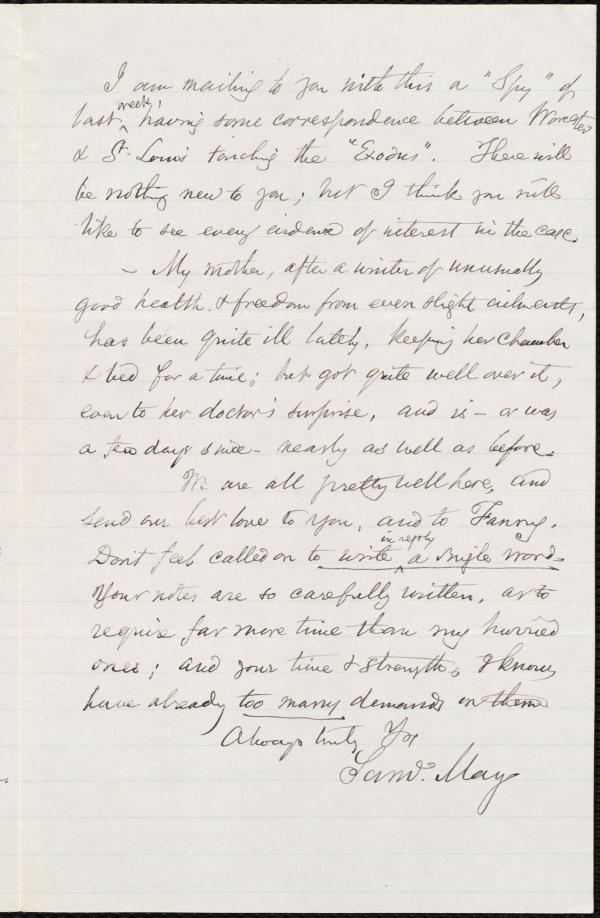 I am mailing to you with this a "Spy" of
last week, having some correspondence between Worcester
& St. Louis touching the "Exodus". There will
be nothing new to you; but I think you will
like to see every evidence of interest in the case.
– My mother, after a winter of unusually
good health & freedom from even slight ailments,
has been quite ill lately, keeping her chamber
& bed for a time; but got quite well over it,
even to her doctor's surprise, and is – or was
a few days since – nearly as well as before.
We are all pretty well here, and
send our best love to you, and to Fanny.
Don't feel called on to write in reply a single word.
Your notes are so carefully written, as to
require far more time than my hurried
ones; and your time & strength, I know,
have already too many demands on them
Always truly Yrs
Saml. May